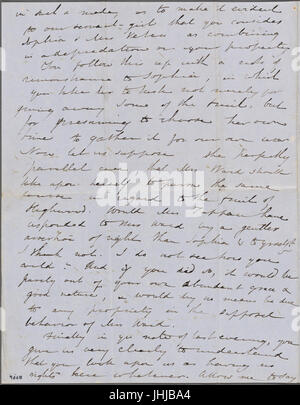 in such a mode, as to make it evident
to our servant-girl that you consider
Sophia & Mrs Peters as combining
in a depredation on your property.
You follow this up with a note of
remonstrance to Sophia, in which
you take her to task not merely for
giving away some of the fruit, but
for presuming to choose her own
time to gather it for our own use.
Now let us suppose the perfectly
parallel case that Mrs Ward should
take upon herself to pursue the same
course in regard to the fruit of
Highwood. Would Mrs Tappan have
responded to Mrs Ward by a gentler
assertion of right than Sophia's to yourself?
I think not. I do not see how you
could. And if you did so, it would be
purely out of your own abundant grace &
good nature, & would by no means be due
to any propriety in the supposed
behavior of Mrs Ward.
Finally in yr note of last evening, you
give us very clearly to understand
that you look upon us as having no
rights here whatever. Allow me to say
alamy
JHJBA4